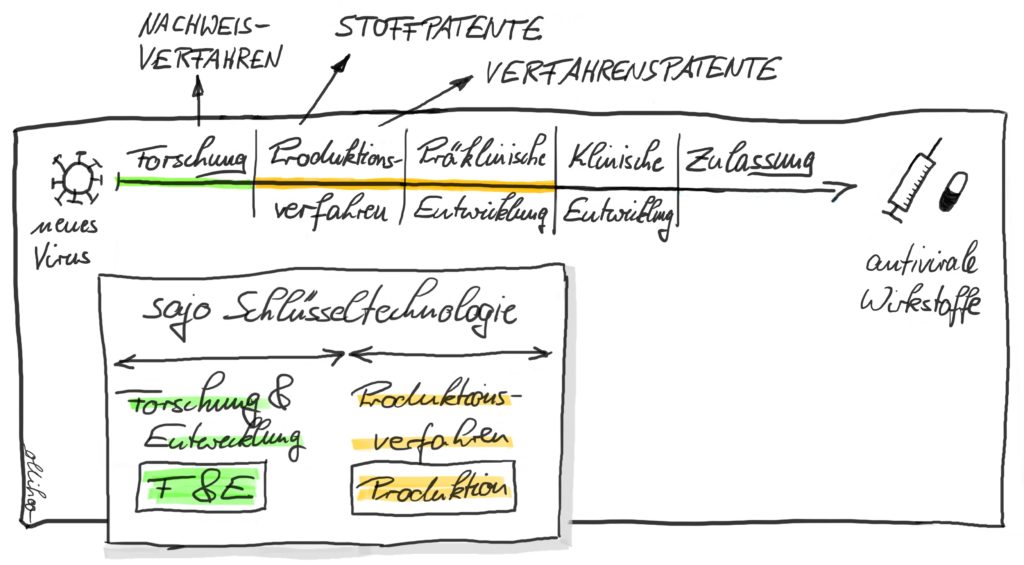 NACHWEIS-
VERFAHREN
STOFFPATENTE
VERFAHRENSPATENTE
Forschung
Produktions-
verfahren
Präklinische
Entwicklung
Klinische
Entwicklung
Zulassung
neues
Virus
antivirale
Wirkstoffe
sajo Schlüsseltechnologie
Forschung &
Entwicklung
F & E
Produktions-
verfahren
Produktion
ollihoo